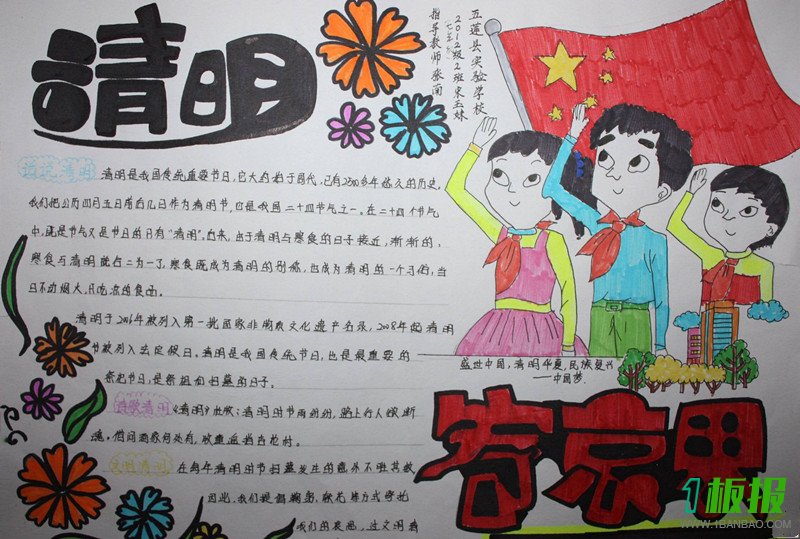 清明
五莲县实验学校
2012级2班
指导教师
清明
清明是我国传统重要节日,它大约始于周代,已有2500多年悠久的历史,
我们把公历四月五日前后几日作为清明节,它是我国二十四节气之一。在二十四个节气
中,既是节气又是节日的只有“清明”。后来,由于清明与寒食的日子接近,渐渐的,
寒食与清明就合二为一了,寒食既成为清明的别称,也成为清明的一个习俗,当
日不动烟火,只吃凉的食品。
清明于2006年被列入第一批国家非物质文化遗产名录,2008年起清明
节被列入法定假日。清明是我国传统节日,也是最重要的
祭祀节日,是祭祖和扫墓的日子。
盛世中国,清明华夏,民族复兴
——中国梦
诗歌清明
《清明》杜牧:清明时节雨纷纷,路上行人欲断
魂,借问酒家何处有,牧童遥指杏花村。
文明清明
在每年清明时节扫墓发生的意外不胜其数
因此,我们提倡鞠躬、献花等方式寄托
我们的哀思,
1板报
WWW.1BANBAO.COM